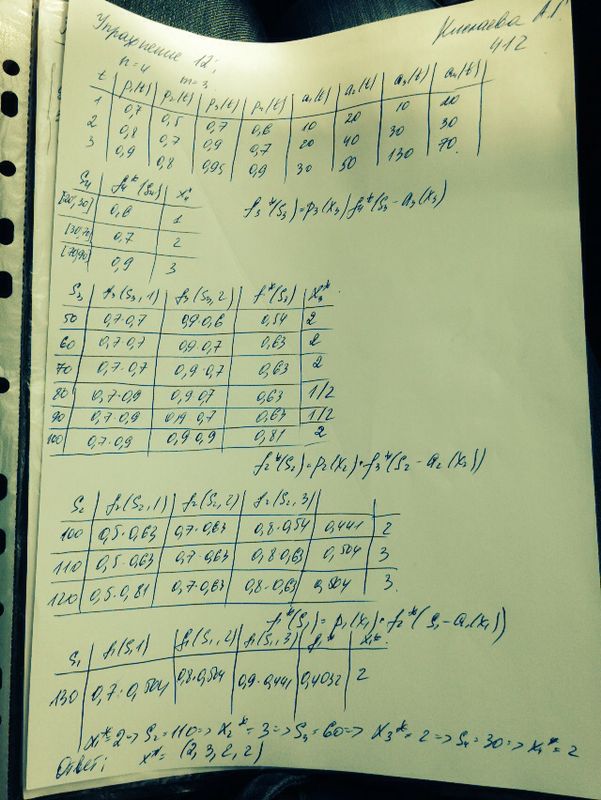 Упражнение 12.
412
n=4 m=3
t p₁(t) p₂(t) p₃(t) p₄(t) a₁(t) a₂(t) a₃(t) a₄(t)
1 0,7 0,5 0,7 0,6 10 20 10 20
2 0,8 0,7 0,9 0,7 20 40 30 30
3 0,9 0,8 0,95 0,9 30 50 130 70
S₄ f₄*(S₄) x₄*
[20,30) 0,6 1
[30,70) 0,7 2
[70,90) 0,9 3
f₃*(S₃)=p₃(x₃) f₄*(S₃-a₃(x₃)
S₃ f₃(S₃,1) f₃(S₃,2) f*(S₃) x₃*
50 0,7·0,7 0,9·0,6 0,54 2
60 0,7·0,7 0,9·0,7 0,63 2
70 0,7·0,7 0,9·0,7 0,63 2
80 0,7·0,9 0,9·0,7 0,63 1/2
90 0,7·0,9 0,9·0,7 0,63 1/2
100 0,7·0,9 0,9·0,9 0,81 2
f₂*(S₂)=p₂(x₂)·f₃*(S₂-a₂(x₂))
S₂ f₂(S₂,1) f₂(S₂,2) f₂(S₂,3)
100 0,5·0,63 0,7·0,63 0,8·0,54 0,441 2
110 0,5·0,63 0,7·0,63 0,8·0,63 0,504 3
120 0,5·0,81 0,7·0,63 0,8·0,63 0,504 3
f₁*(S₁)=p₁(x₁)·f₂*(S₁-a₁(x₁))
S₁ f₁(S₁,1) f₁(S₁,2) f₁(S₁,3) f₁* x₁*
130 0,7·0,504 0,8·0,504 0,9·0,441 0,4032 2
x₁*=2=>S₂=110=>x₂*=3=>S₃=60=>x₃*=2=>S₄=30=>x₄*=2
Ответ: x*=(2,3,2,2)